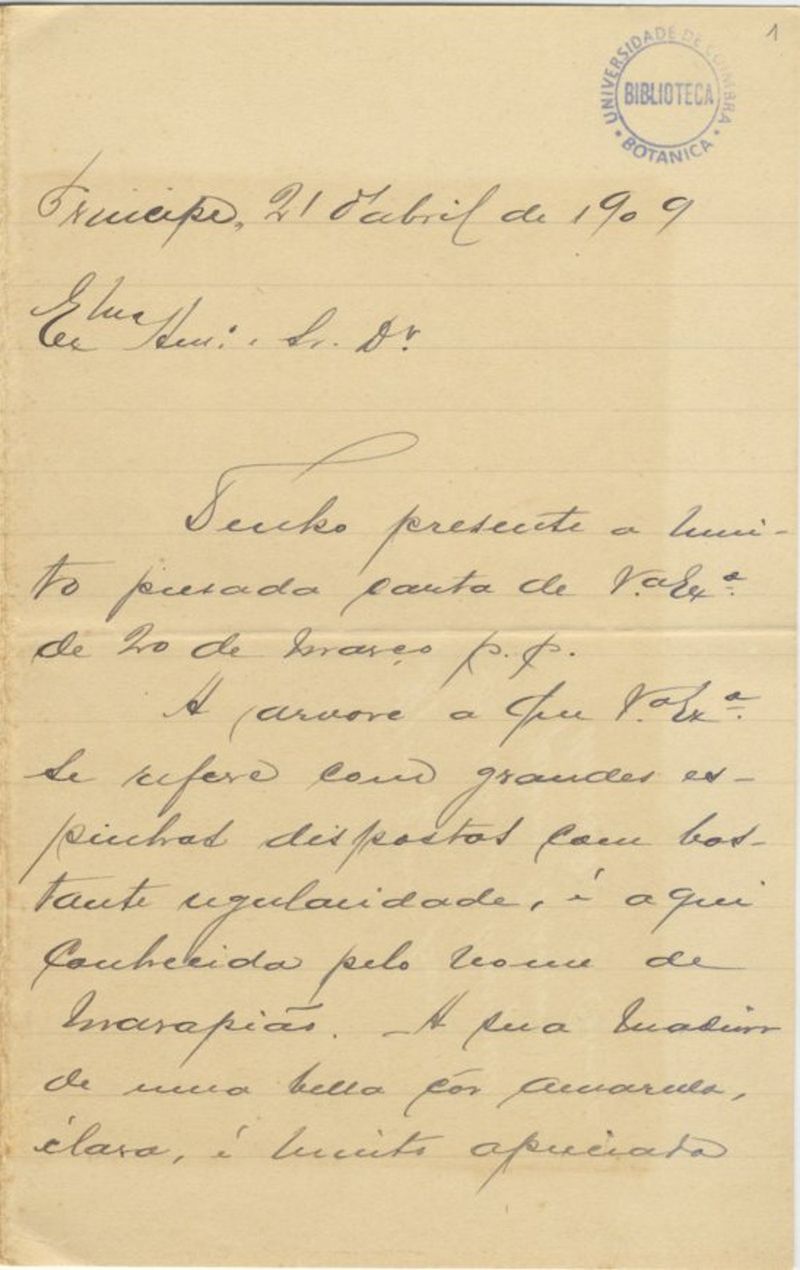 1
UNIVERSIDADE DE COIMBRA
BIBLIOTECA
BOTANICA
Principe, 21 d'abril de 1909
Sr. Dr.
Tenho presente a mui-
to presada carta de V.ª Ex.ª
de 20 de Março p. p.
A arvore a que V.ª Ex.ª
se refere com grandes es-
pinhos dispostos com bas-
tante regularidade, é aqui
conhecida pelo nome de
Marapião. - A sua madeira
de uma bella côr amarela,
clara, é muito apreciada